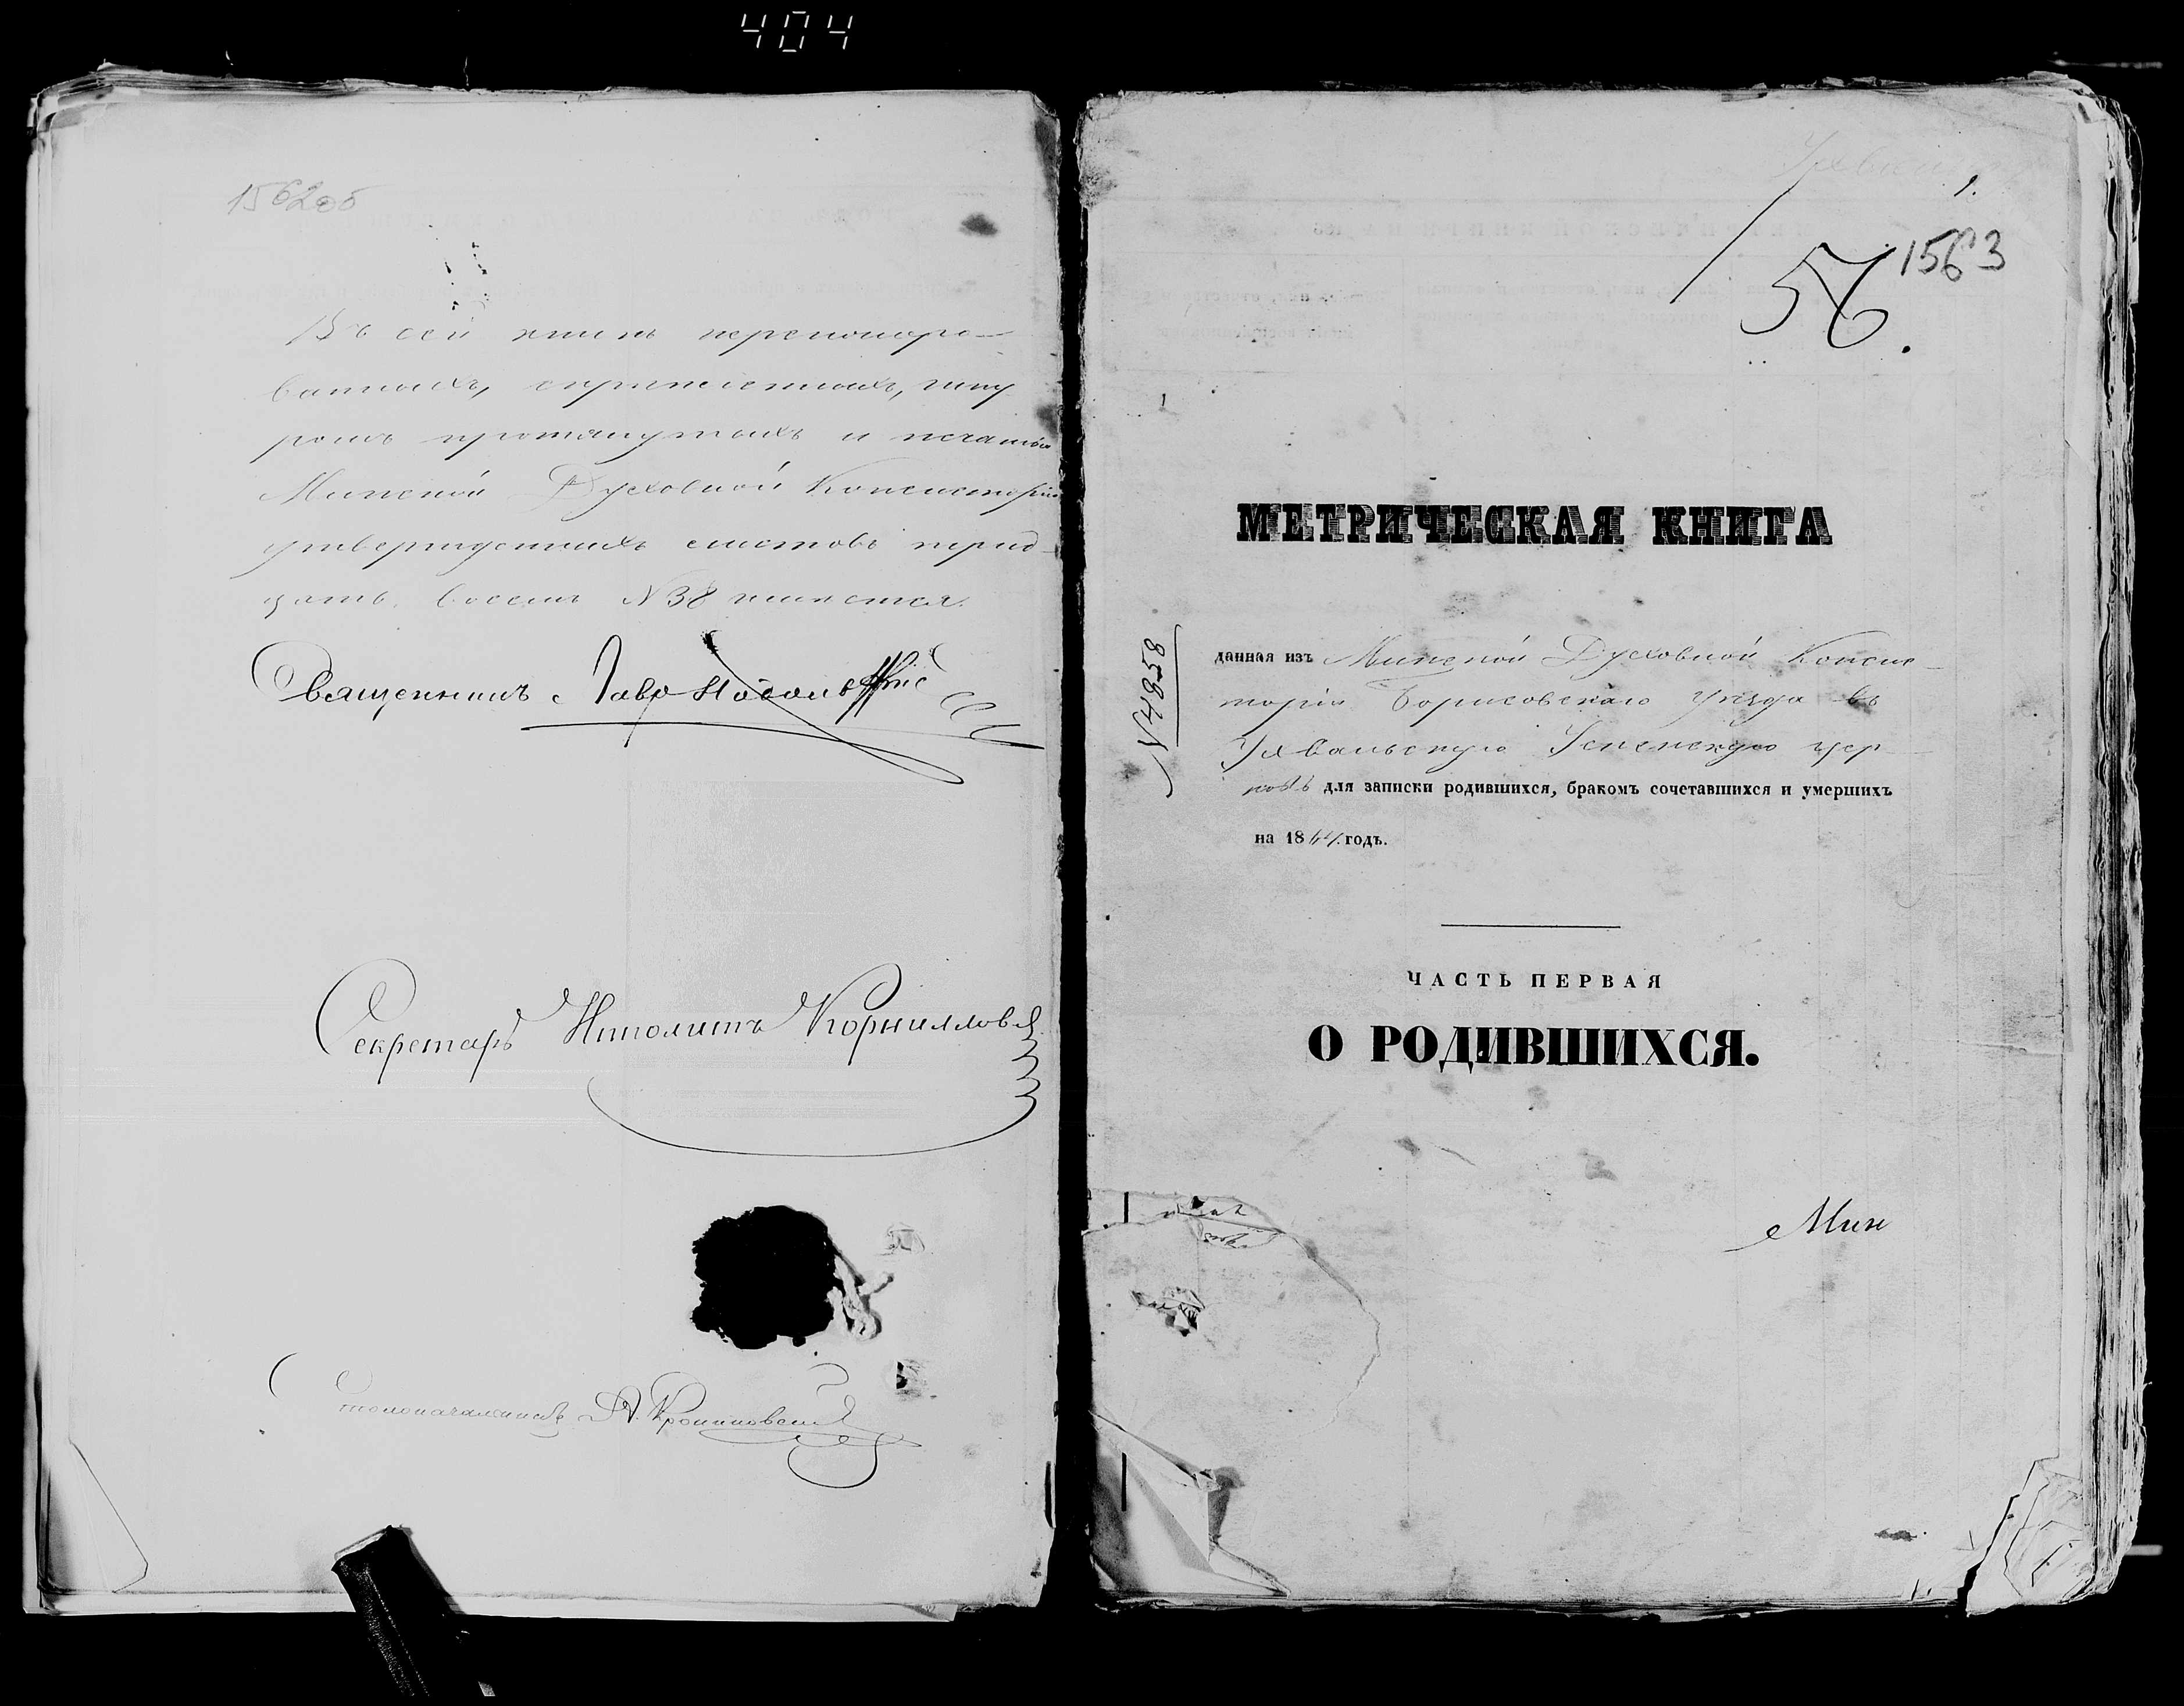 404
1562об
Въ сей книгѣ перенумеро-
ванныхъ, скрѣпленныхъ, шну
ромъ протянутыхъ и печатью
Минской Духовной Консисторіи
утвержденныхъ листовъ трид-
цать восемь №38 имѣется.
Священникъ
Секретарь Иполитъ Корниллов
Столоначальникъ А.
1.
56.
1563
МЕТРИЧЕСКАЯ КНИГА
№ 4858
данная изъ Минской Духовной Конси-
сторіи Борисовскаго уѣзда въ
Ухвальскую Успенскую цер-
ковь для записки родившихся, бракомъ сочетавшихся и умершихъ
на 1864 годъ.
ЧАСТЬ ПЕРВАЯ
О РОДИВШИХСЯ.
Мин